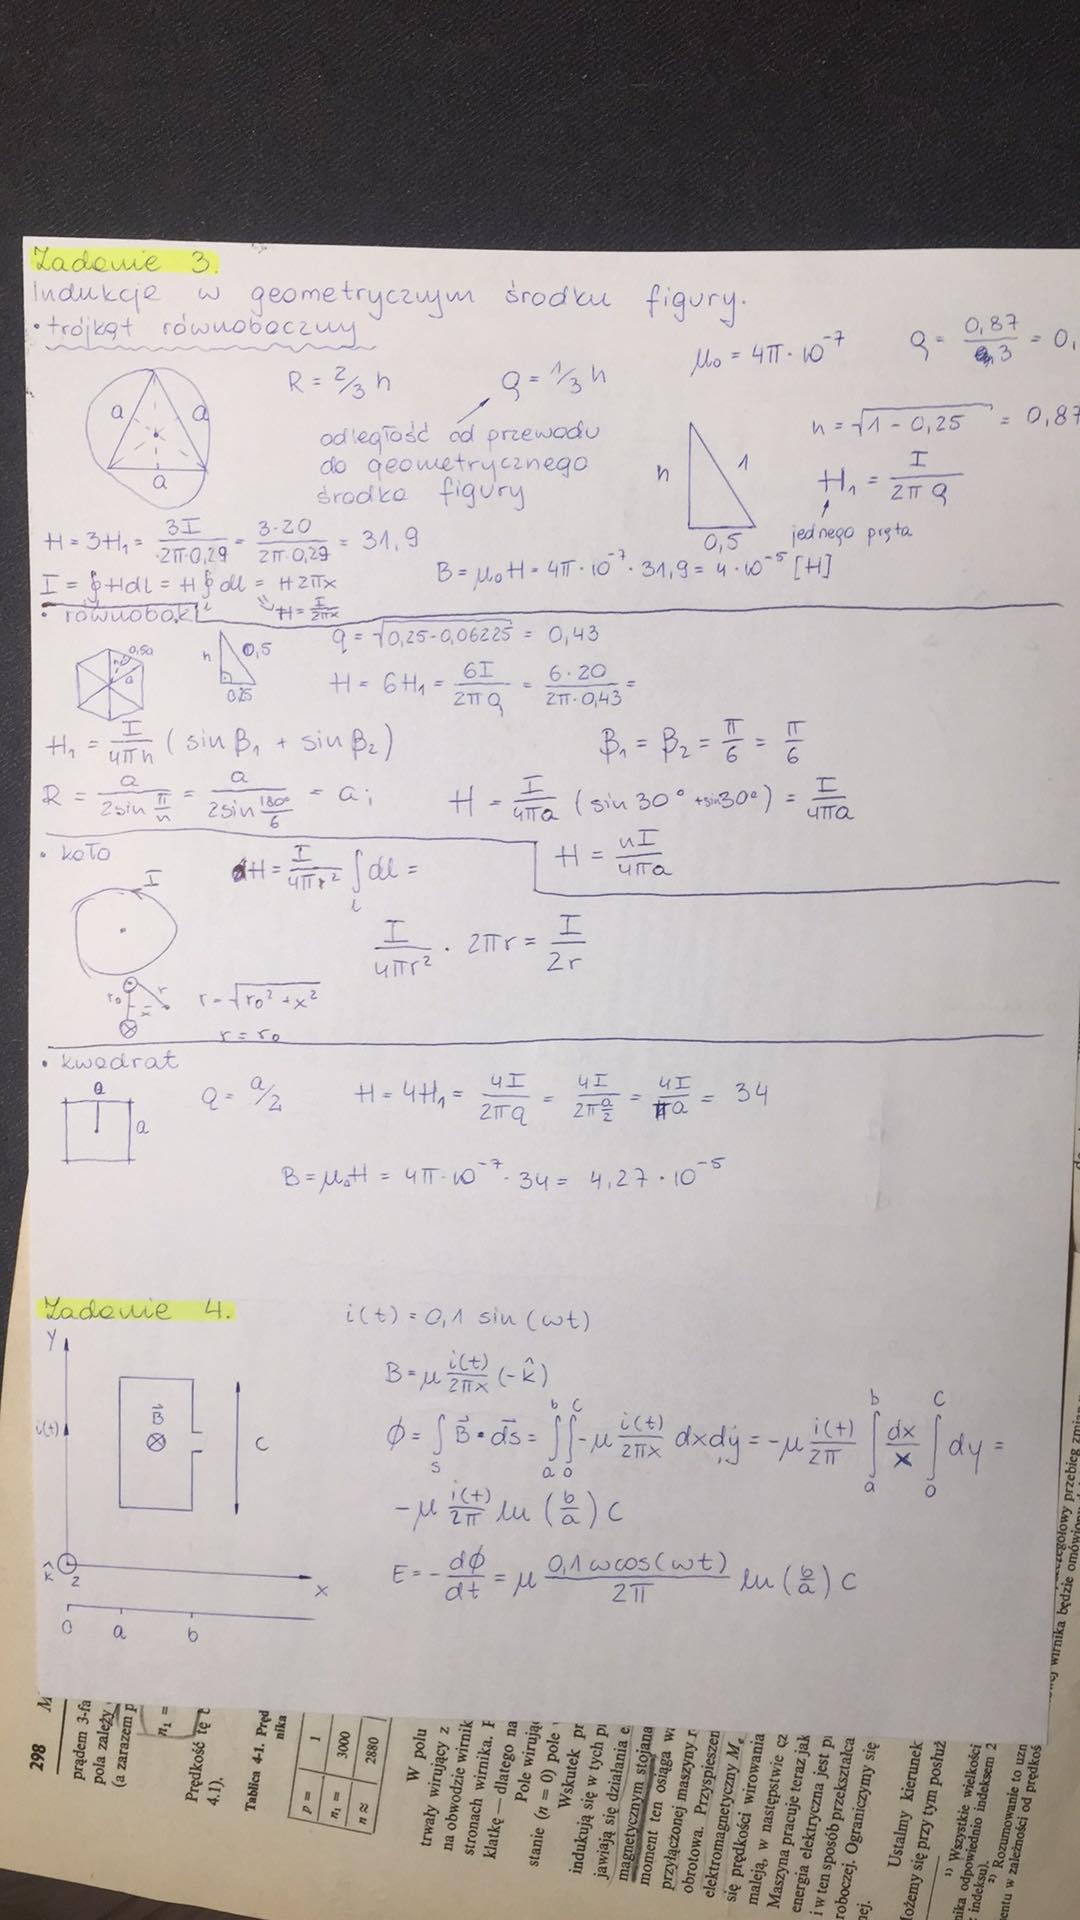 Zadanie 3.
Indukcje w geometrycznym środku figury.
• trójkąt równoboczny
μ₀ = 4π · 10⁻⁷
ϱ = 0,87/3 = 0,
R = 2/3 h
ϱ = 1/3 h
a a a
odległość od przewodu
do geometrycznego
środka figury
h 1 0,5
h = √(1 - 0,25) = 0,87
H₁ = I/(2π ϱ)
jednego pręta
H = 3H₁ = 3I/(2π·0,29) = 3·20/(2π·0,29) = 31,9
B = μ₀H = 4π · 10⁻⁷ · 31,9 = 4 · 10⁻⁵ [H]
I = ∮Hdl = H∮dl = H2πx
H = I/(2πx)
• równobok
h 0,5 0,25
ϱ = √(0,25-0,06225) = 0,43
H = 6H₁ = 6I/(2πϱ) = 6·20/(2π·0,43) =
H₁ = I/(4πh) (sin β₁ + sin β₂)
β₁ = β₂ = π/6 = π/6
R = a/(2sin π/n) = a/(2sin 180°/6) = a;
H = I/(4πa) (sin 30° + sin 30°) = I/(4πa)
H = nI/(4πa)
• koło
I
dH = I/(4πr²) ∫dl =
l
I/(4πr²) · 2πr = I/(2r)
r₀ r x
r = √(r₀² + x²)
r = r₀
• kwadrat
a a
ϱ = a/2
H = 4H₁ = 4I/(2πϱ) = 4I/(2π a/2) = 4I/(πa) = 34
B = μ₀H = 4π·10⁻⁷ · 34 = 4,27 · 10⁻⁵
Zadanie 4.
i(t) = 0,1 sin(ωt)
y
i(t)
B⃗
c
k̂ z
x
0 a b
B = μ i(t)/(2πx) (-k̂)
ϕ = ∫ₛ B⃗ • ds⃗ = ∫ₐᵇ∫₀ᶜ -μ i(t)/(2πx) dxdy = -μ i(t)/(2π) ∫ₐᵇ dx/x ∫₀ᶜ dy =
-μ i(t)/(2π) ln (b/a) c
E = - dϕ/dt = μ 0,1ωcos(ωt)/(2π) ln(b/a) c
298 M
prądem 3-fa
pola zależy
(a zarazem p
n₁ =
Prędkość tę
4.1),
Tablica 4-1. Pręd
nika
p = 1
n₁ = 3000
n ≈ 2880
W polu
trwały wirujący z
na obwodzie wirnik
stronach wirnika.
klatkę — dlatego na
Pole wirując
stanie (n = 0) pole
Wskutek pr
indukują się w tych p
jawiają się działania e
magnetycznym stojana
moment ten osiąga w
przyłączonej maszyny
obrotowa. Przyspieszen
elektromagnetyczny Mₑ
się prędkości wirowania
maleją, w następstwie cz
Maszyna pracuje teraz jak
energia elektryczna jest p
i w ten sposób przekształca
roboczej. Ograniczymy się
nej.
Ustalmy kierunek
Możemy się przy tym posłuż
¹) Wszystkie wielkości
nika odpowiednio indeksem 2
indeksu).
²) Rozumowanie to uzn
entu w zależności od prędkoś
szczegółowy przebieg zmian
wirnika będzie omówion